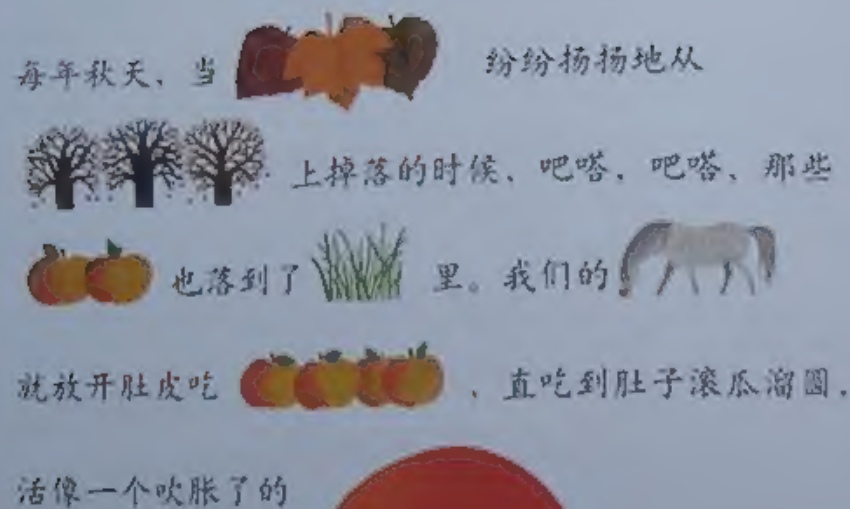 每年秋天、当 纷纷扬扬地从
上掉落的时候、吧嗒、吧嗒、那些
也落到了 里。我们的
就放开肚皮吃 、直吃到肚子滚瓜溜圆、
活像一个吹胀了的